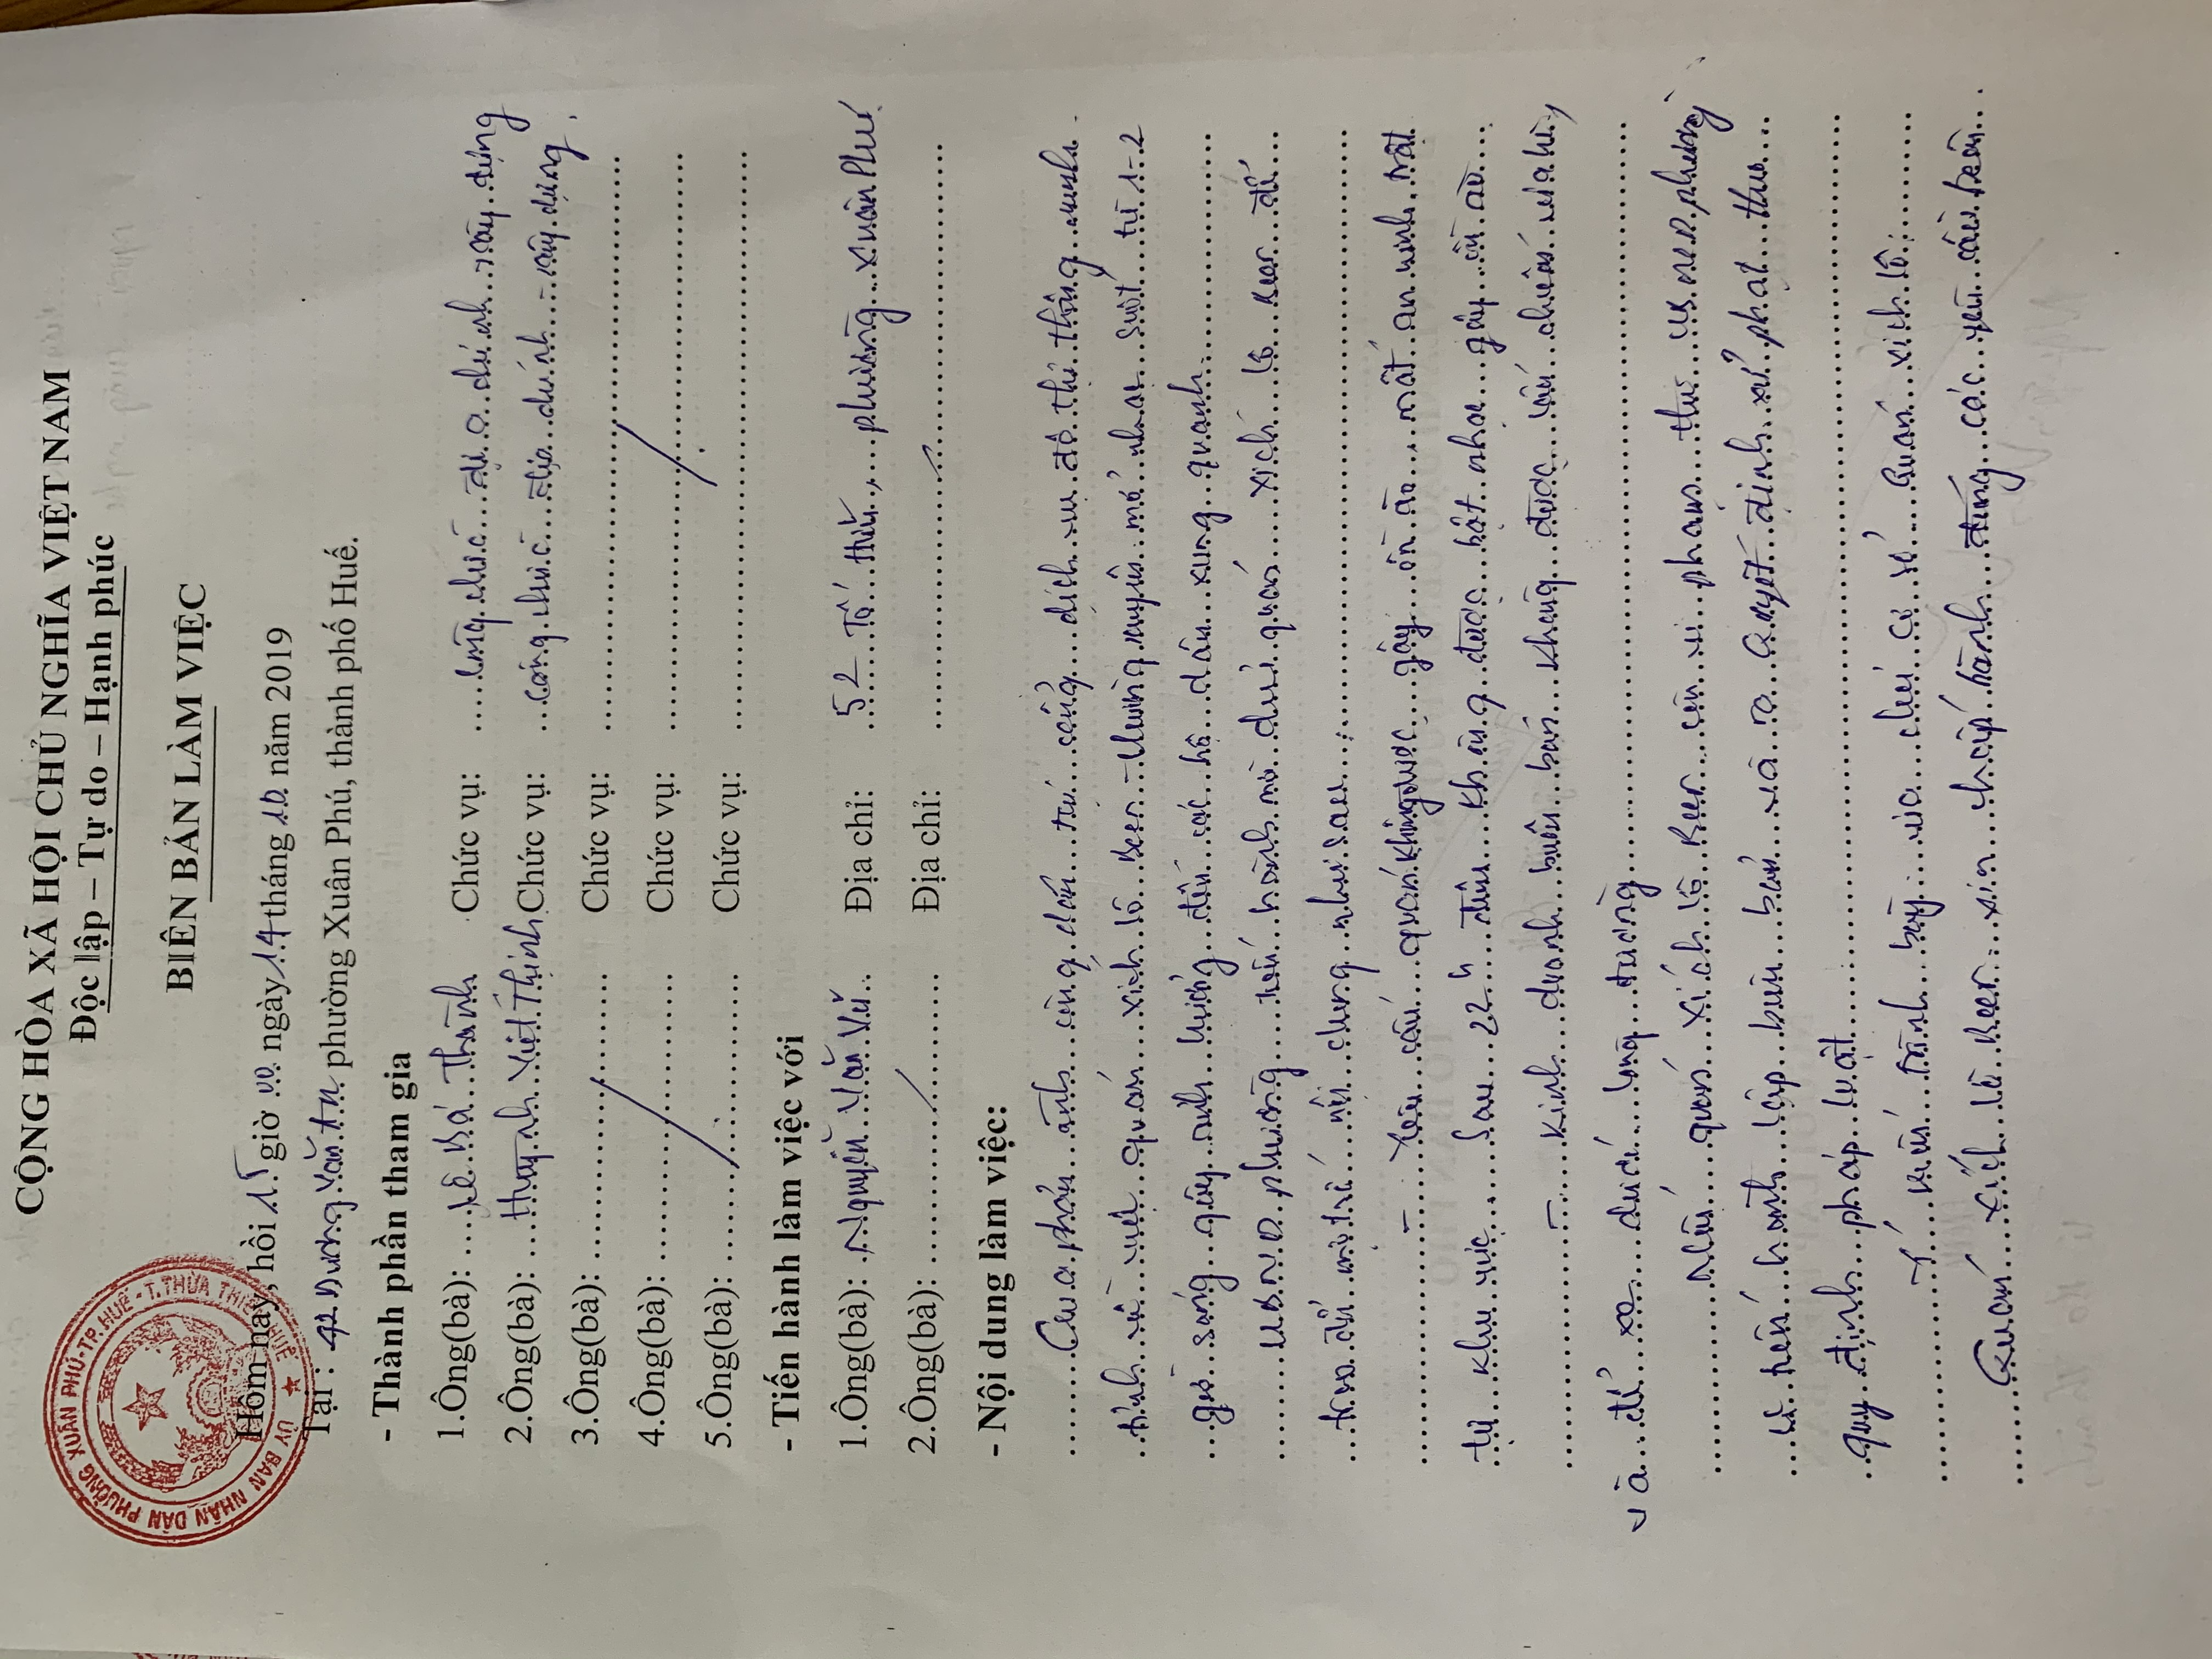 CỘNG HÒA XÃ HỘI CHỦ NGHĨA VIỆT NAM
Độc lập – Tự do – Hạnh phúc
BIÊN BẢN LÀM VIỆC
Hôm nay, hồi 15 giờ 00 ngày 14 tháng 10 năm 2019
Tại : 42 Dương Văn An phường Xuân Phú, thành phố Huế.
- Thành phần tham gia
1.Ông(bà): Lê Bá Thành Chức vụ: Công chức địa chính xây dựng
2.Ông(bà): Huỳnh Viết Thịnh Chức vụ: Công chức địa chính - xây dựng.
3.Ông(bà): Chức vụ:
4.Ông(bà): Chức vụ:
5.Ông(bà): Chức vụ:
- Tiến hành làm việc với
1.Ông(bà): Nguyễn Văn Vũ Địa chỉ: 52 Tố Hữu, phường Xuân Phú
2.Ông(bà): Địa chỉ:
- Nội dung làm việc:
Qua phản ánh công dân cổng dịch vụ đô thị thông minh
tỉnh về việc quán xích lô Beer thường xuyên mở nhạc suốt từ 1-2
giờ sáng gây ảnh hưởng đến các hộ dân xung quanh.
UBND phường tiến hành mời chủ quán xích lô Beer để
trao đổi một nội dung như sau:
- Yêu cầu quán không được gây ồn ào, mất an ninh trật
tự khu vực. Sau 22h đêm không được bật nhạc gây ồn ào
- Kinh doanh buôn bán không được lấn chiếm vỉa hè,
và để xe dưới lòng đường
Nếu quán xích lô Beer còn vi phạm thì UBND phường
sẽ tiến hành lập biên bản và ra Quyết định xử phạt theo
quy định pháp luật
- Ý kiến trình bày của chủ cơ sở Quán xích lô:
Quán xích lô Beer xin chấp hành đúng các yêu cầu trên.
ỦY BAN NHÂN DÂN PHƯỜNG XUÂN PHÚ-TP.HUẾ - T.THỪA THIÊN HUẾ